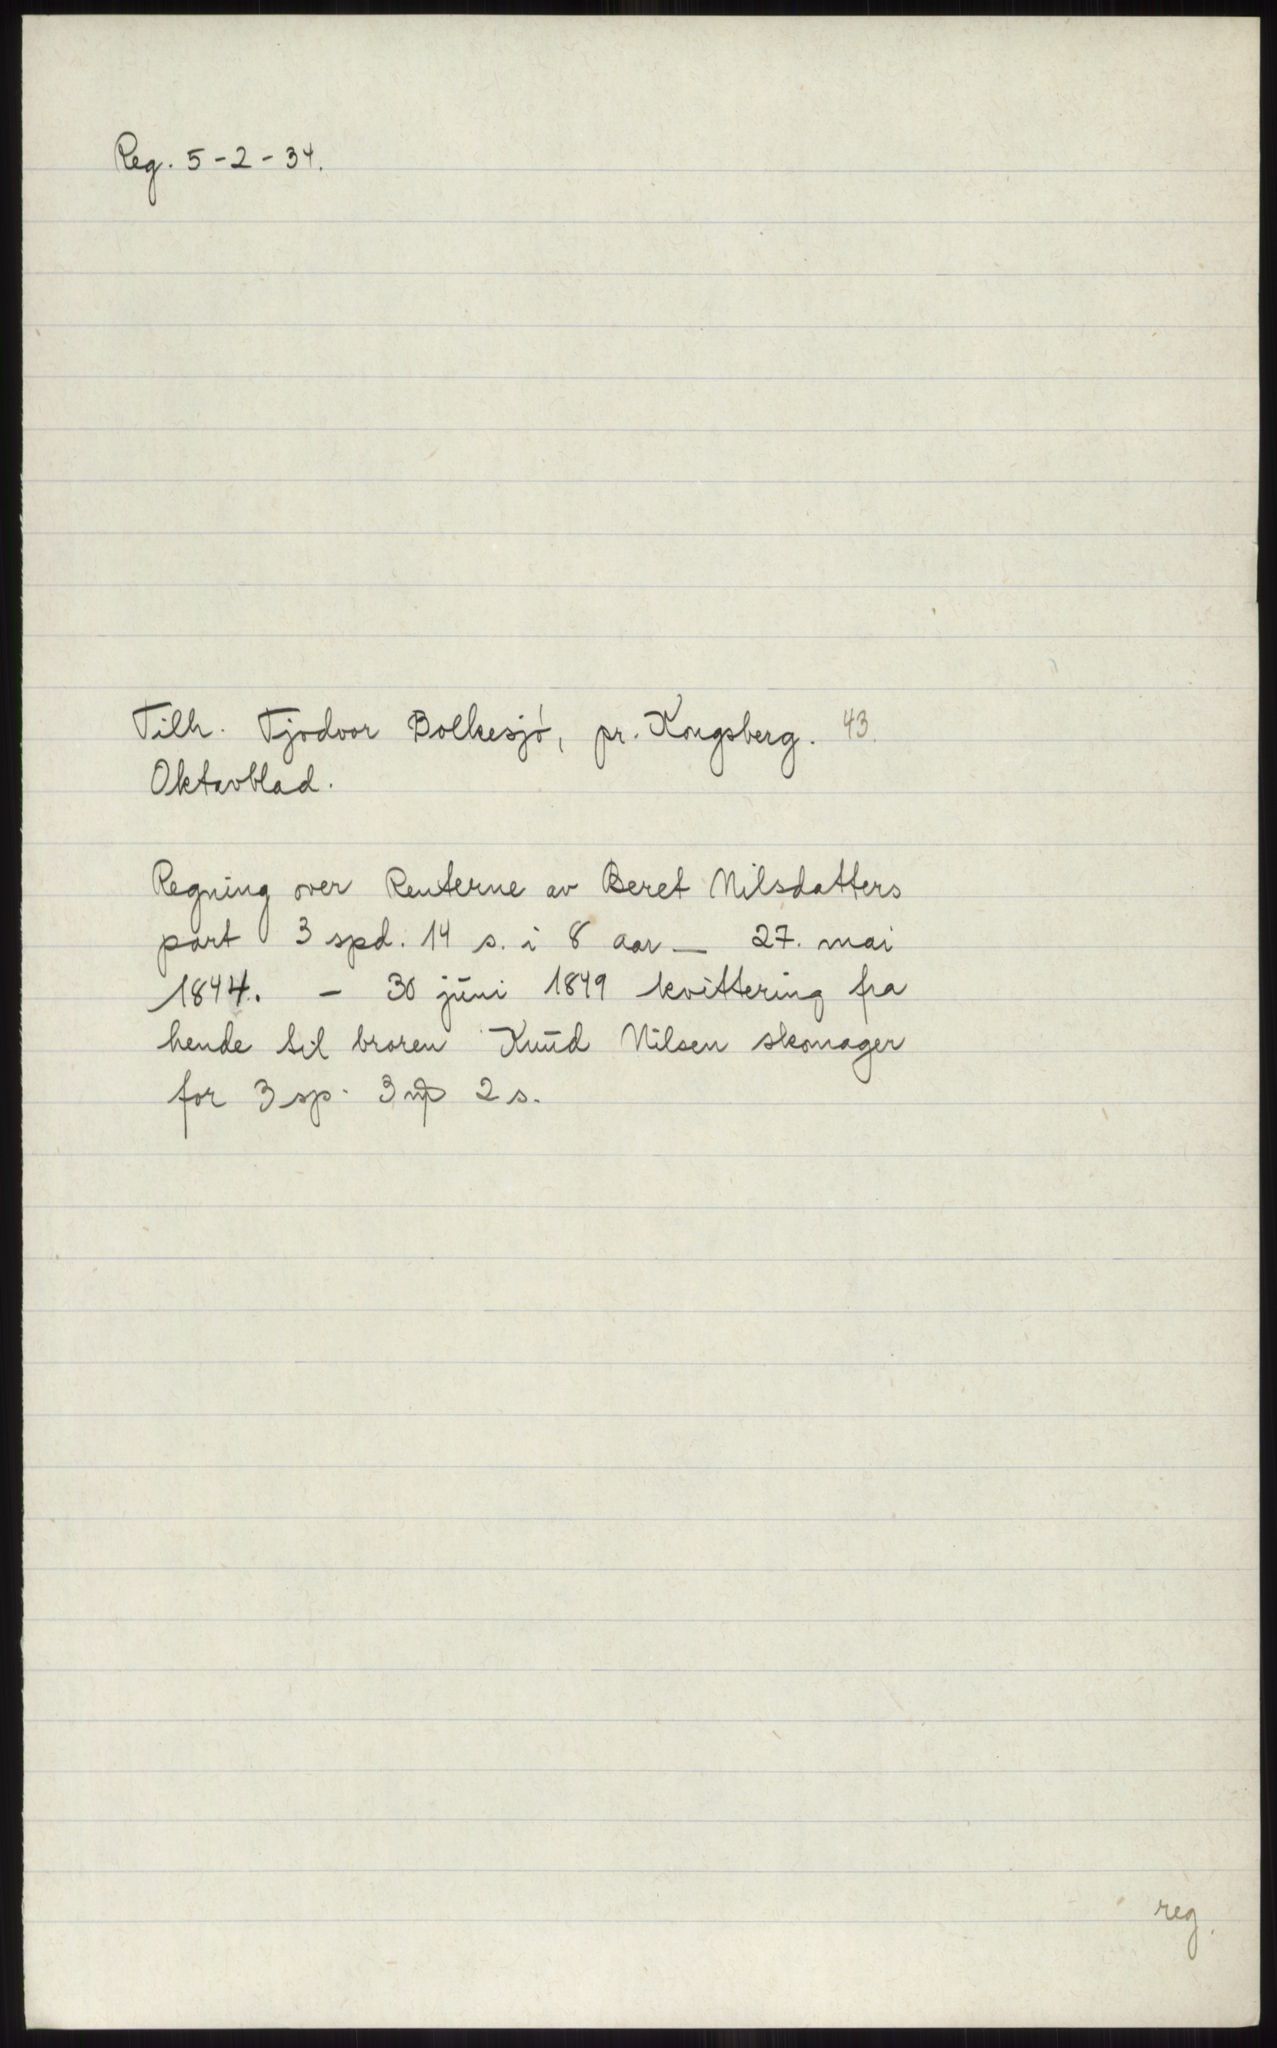 Reg. 5-2-34.
Tilh. Tjodvor Bolkesjø, pr. Kongsberg. 43.
Oktavblad.
Regning over Renterne av Beret Nilsdatters
part 3 spd. 14 s. i 8 aar — 27. mai
1844. - 30 juni 1849 kvittering fra
hende til broren Knud Nilsen skomager
for 3 sp. 3 2 s.
reg.